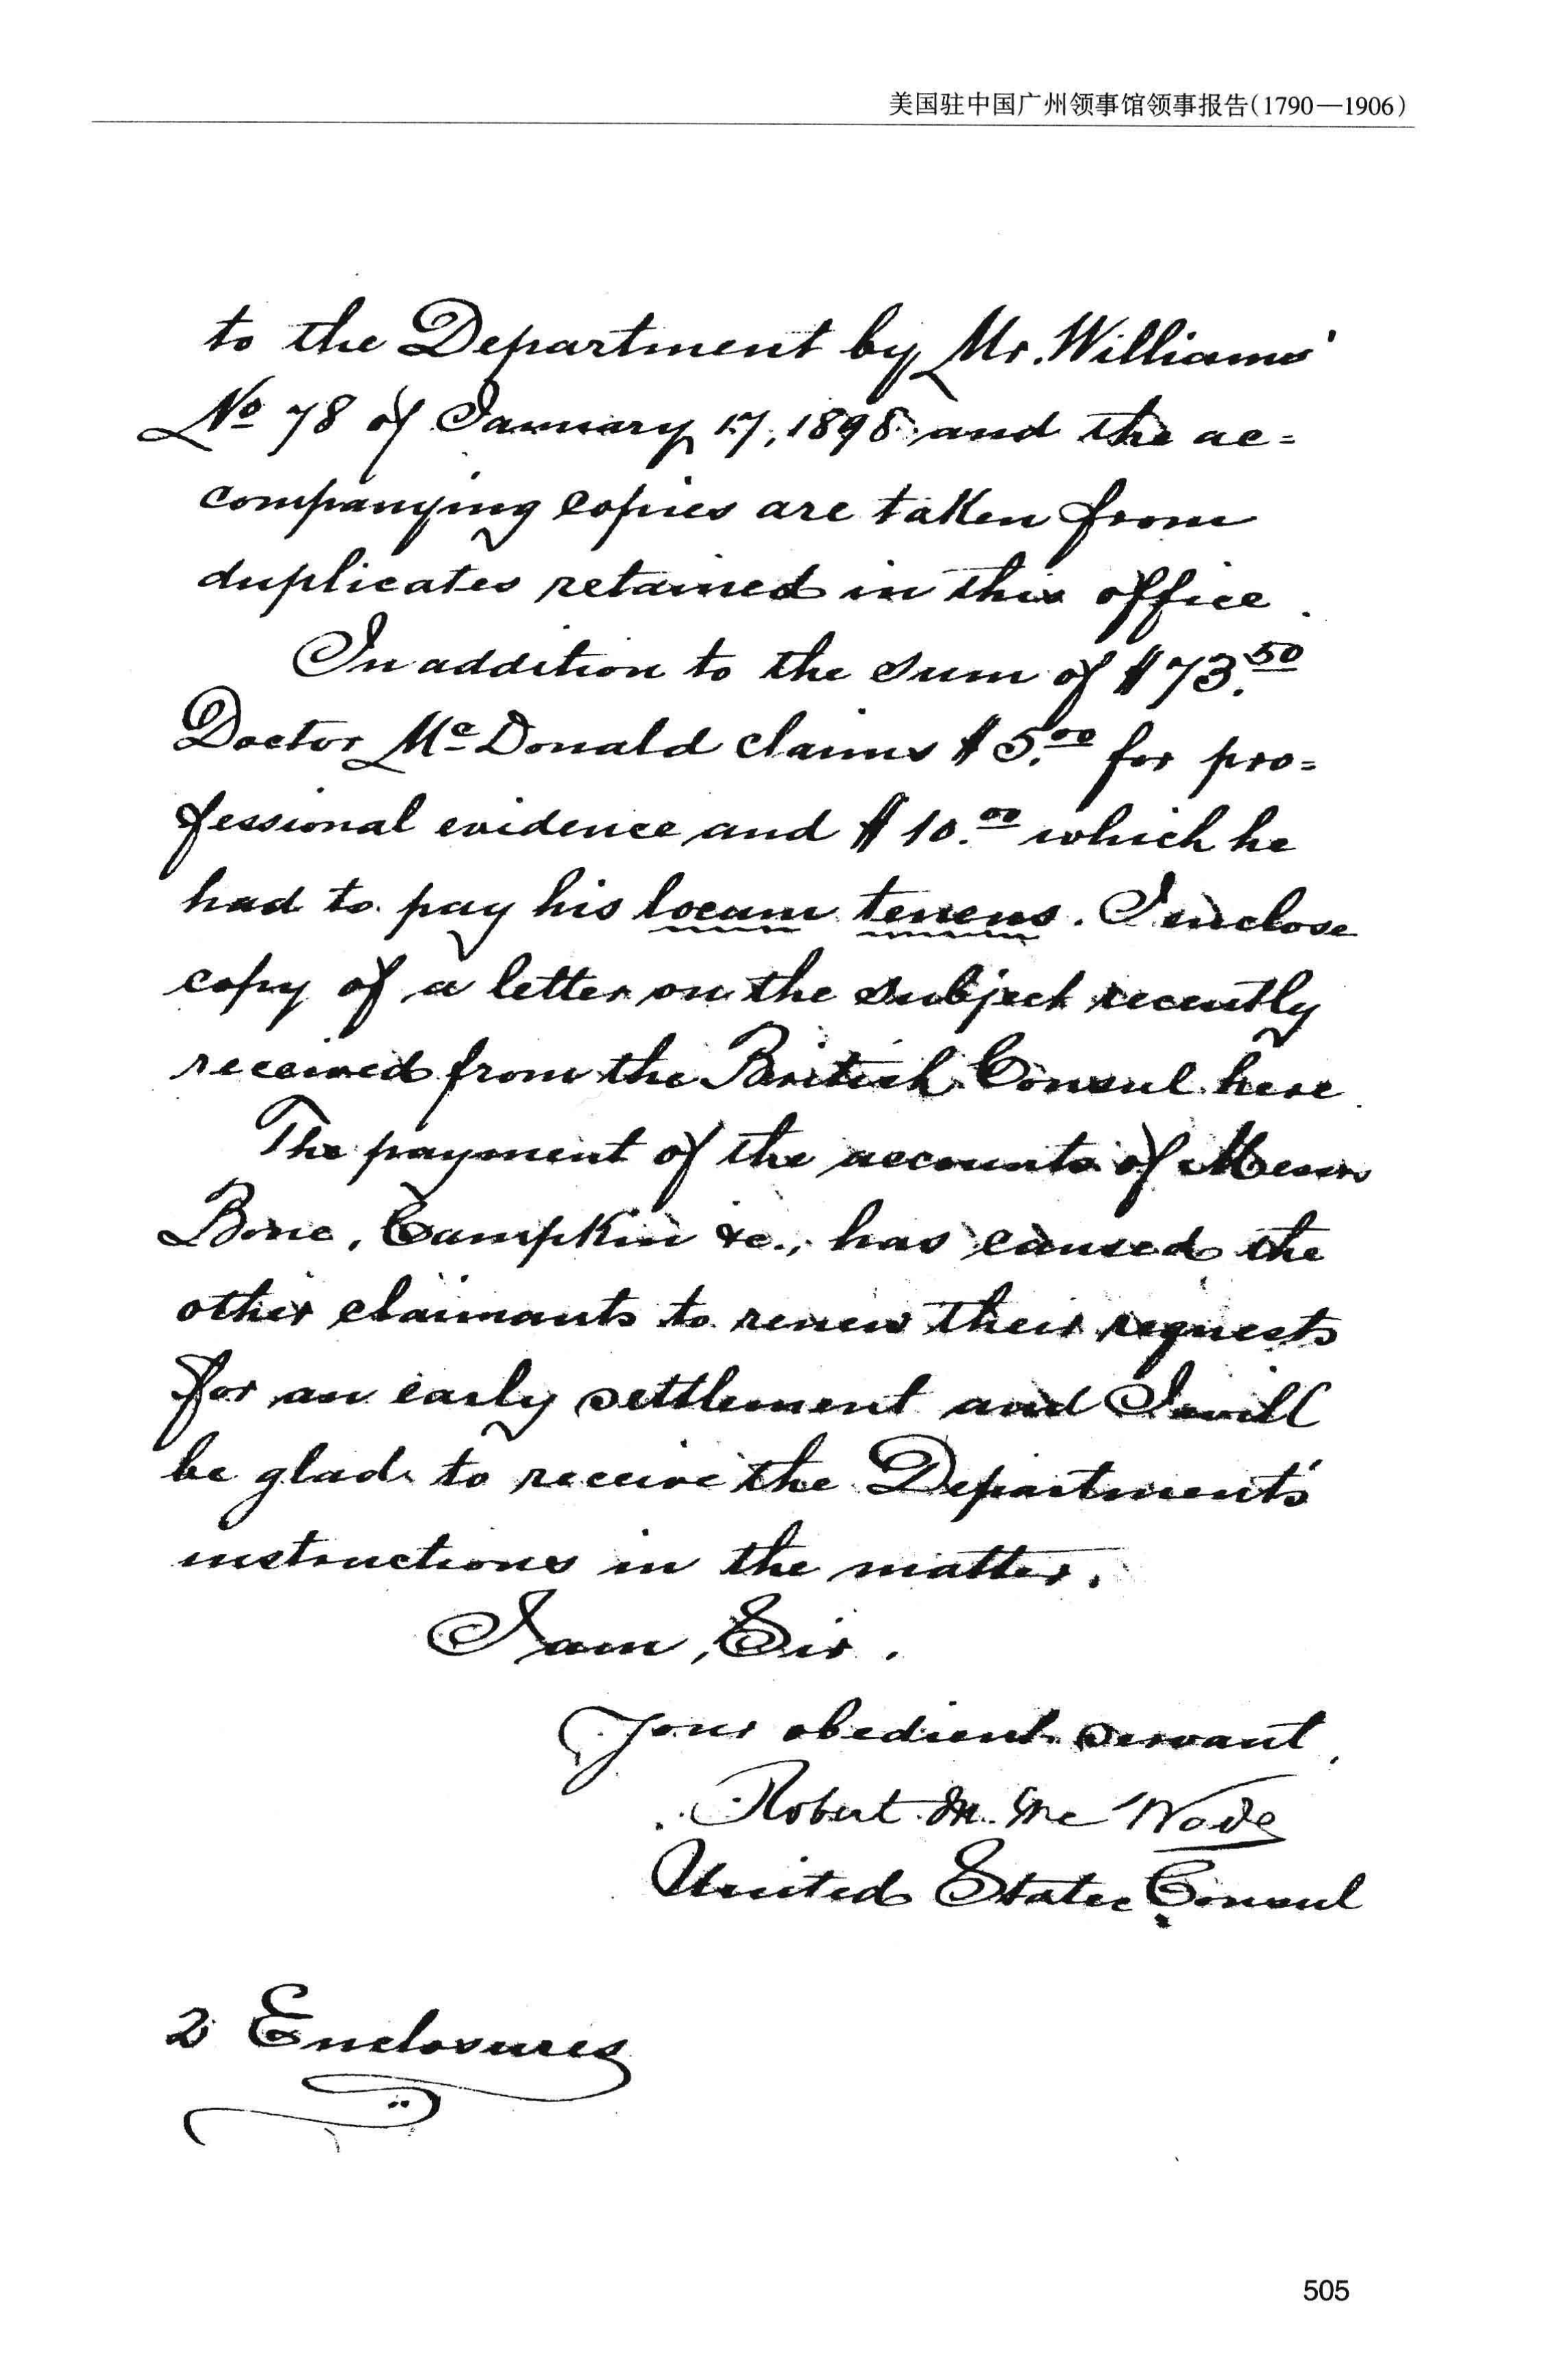 美国驻中国广州领事馆领事报告(1790—1906)
to the Department by Mr. Williams'
No 78 of January 17, 1898 and the ac=
companying copies are taken from
duplicates retained in this office.
In addition to the sum of $73.50
Doctor McDonald claims $5.00 for pro=
fessional evidence and $10.00 which he
had to pay his locum tenens. I enclose
copy of a letter on the subject recently
received from the British Consul here.
The payment of the accounts of Messrs
Bone, Campkin &c., has caused the
other claimants to renew their requests
for an early settlement and I will
be glad to receive the Department's
instructions in the matter.
I am, Sir.
Your obedient servant,
Robert M. McWade
United States Consul
2 Enclosures
505